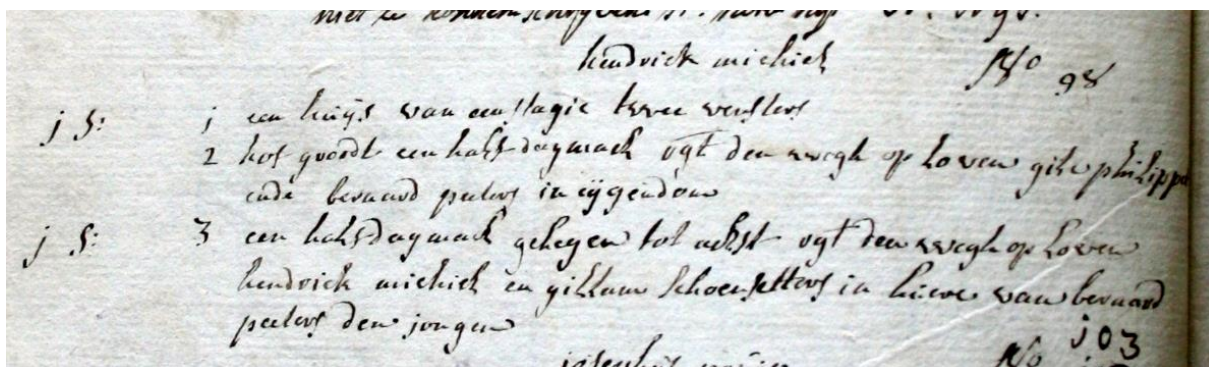 niet te konnen schryven
hendrick michiels No 98
j S: 1 een huijs van een stagie twee vensters
2 hof groodt een half daymael regt den wegh op Loven gile philipps
ende bernard peeters in eijgendom
j S: 3 een half daymael gelegen tot aelst regt den wegh op Loven
hendrick michiels en gillam Schoensetters in huere van bernard
peeters den jongen
No 103